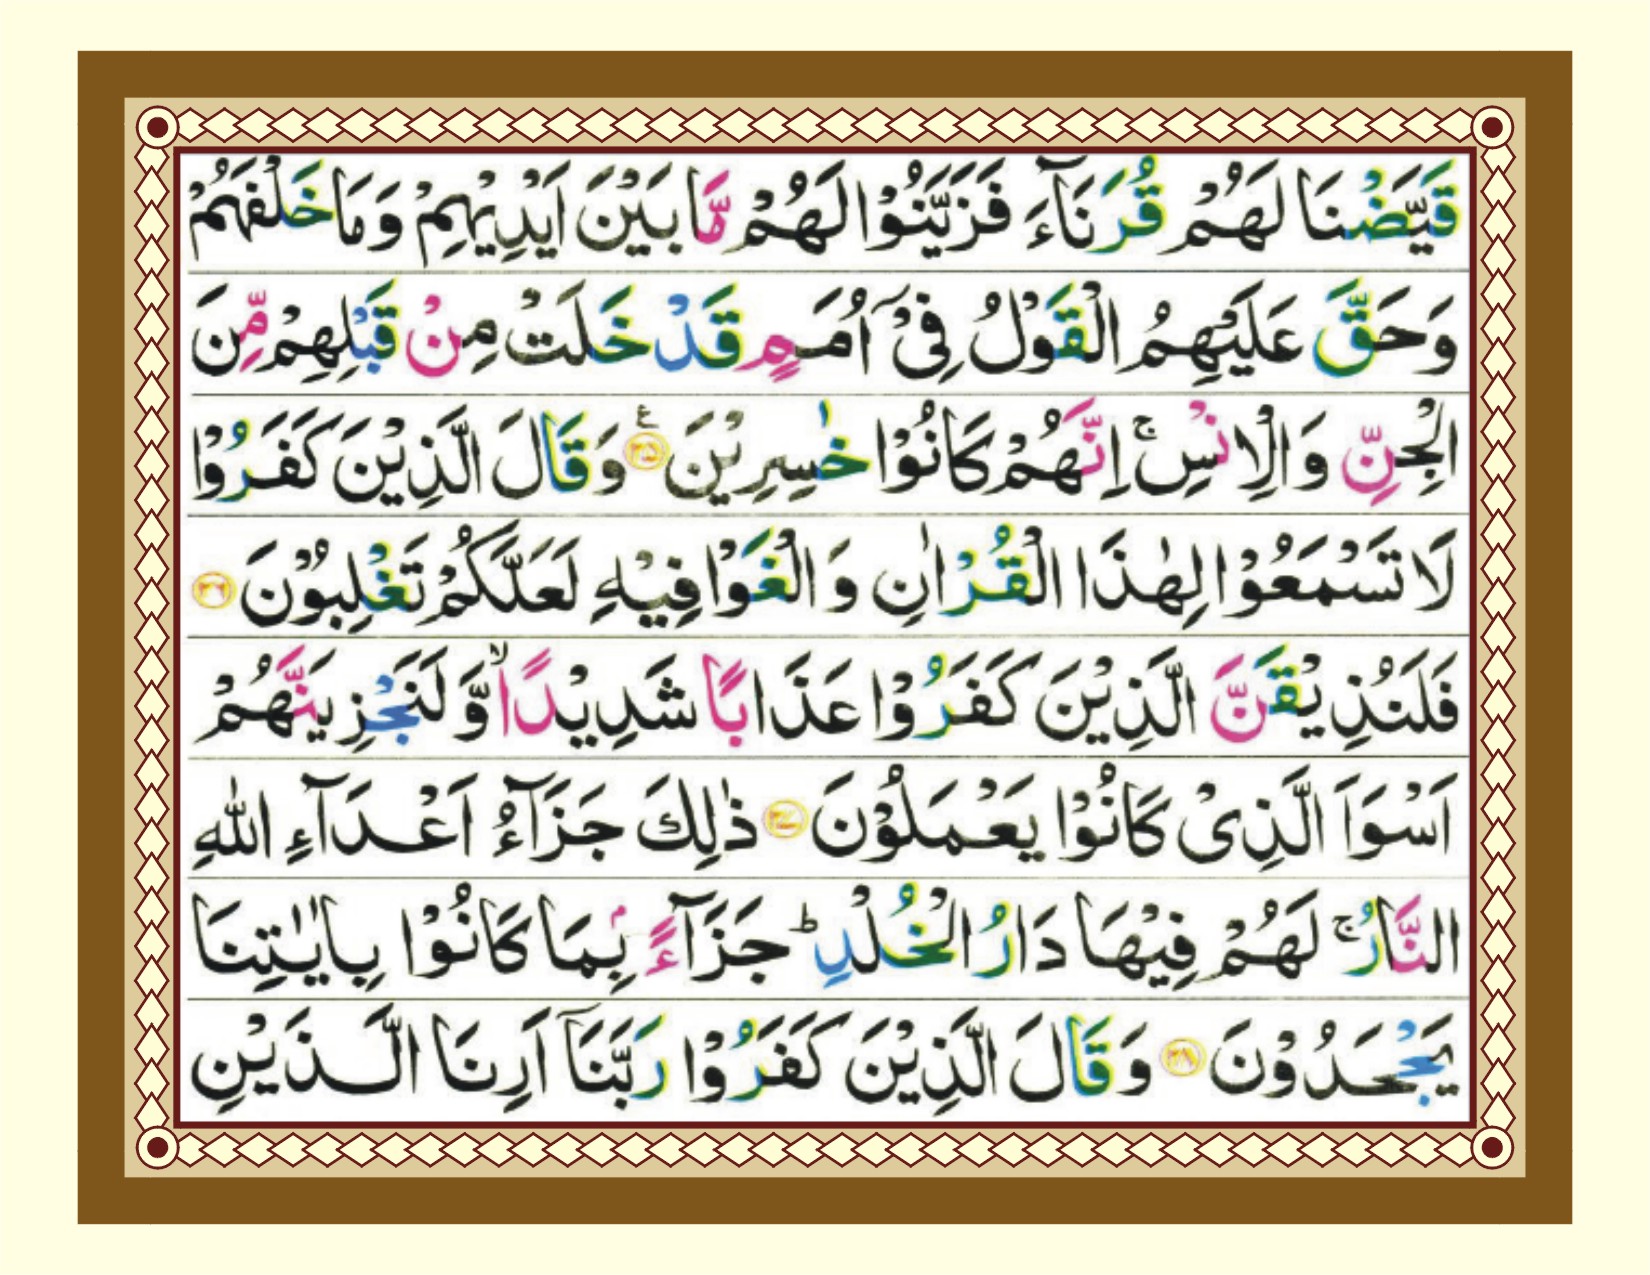 قَيَّضْنَا لَهُمْ قُرَنَآءَ فَزَيَّنُوْا لَهُمْ مَّا بَيْنَ اَيْدِيْهِمْ وَمَا خَلْفَهُمْ
وَحَقَّ عَلَيْهِمُ الْقَوْلُ فِىْٓ اُمَمٍ قَدْ خَلَتْ مِنْ قَبْلِهِمْ مِّنَ
الْجِنِّ وَالْاِنْسِ ۚ اِنَّهُمْ كَانُوْا خٰسِرِيْنَ ﴿۲۵﴾ ع وَقَالَ الَّذِيْنَ كَفَرُوْا
لَا تَسْمَعُوْا لِهٰذَا الْقُرْاٰنِ وَالْغَوْا فِيْهِ لَعَلَّكُمْ تَغْلِبُوْنَ ﴿۲۶﴾
فَلَنُذِيْقَنَّ الَّذِيْنَ كَفَرُوْا عَذَابًا شَدِيْدًا ۙ وَّلَنَجْزِيَنَّهُمْ
اَسْوَاَ الَّذِىْ كَانُوْا يَعْمَلُوْنَ ﴿۲۷﴾ ذٰلِكَ جَزَآءُ اَعْدَآءِ اللّٰهِ
النَّارُ ۚ لَهُمْ فِيْهَا دَارُ الْخُلْدِ ؕ جَزَآءًۢ بِمَا كَانُوْا بِاٰيٰتِنَا
يَجْحَدُوْنَ ﴿۲۸﴾ وَقَالَ الَّذِيْنَ كَفَرُوْا رَبَّنَآ اَرِنَا الَّذَيْنِ